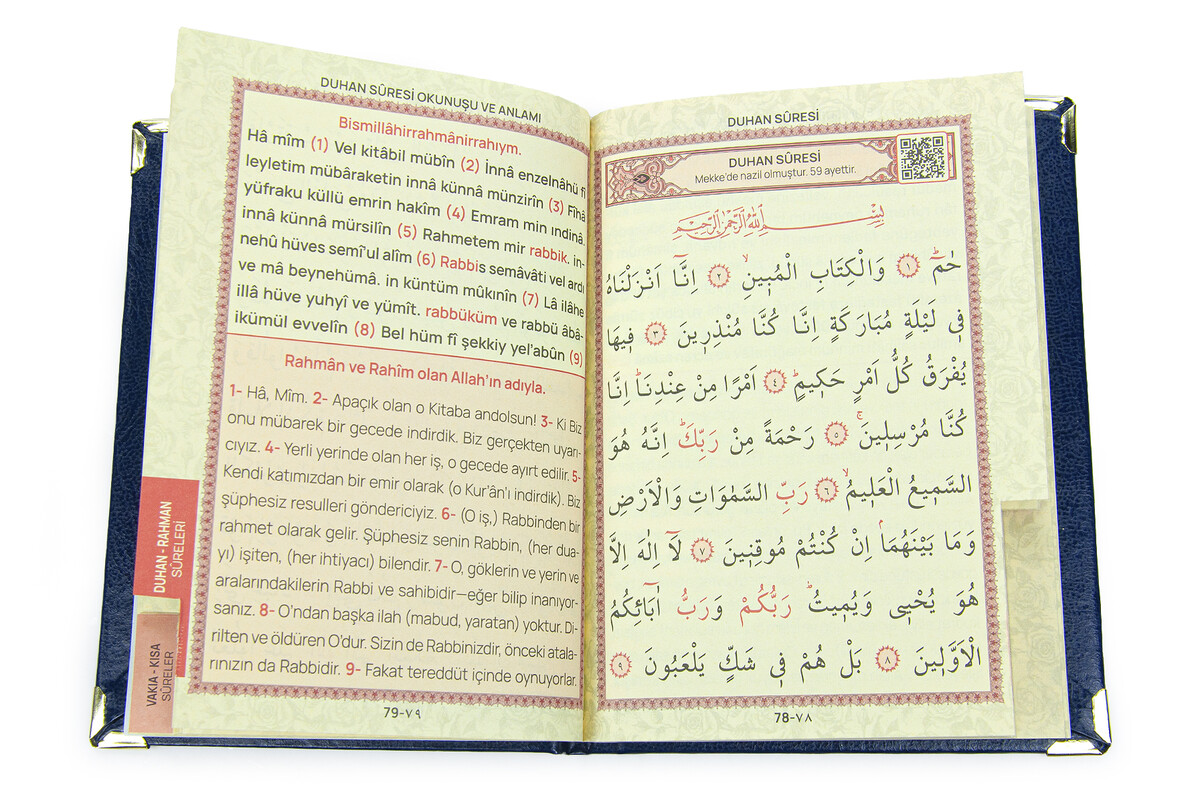 DUHAN SÛRESİ
DUHAN SÛRESİ
Mekke'de nazil olmuştur. 59 ayettir.
بِسْمِ اللّٰهِ الرَّحْمٰنِ الرَّح۪يمِ
حٰمٓۜ ﴿١﴾ وَالْكِتَابِ الْمُب۪ينِۙ ﴿٢﴾ اِنَّٓا اَنْزَلْنَاهُ
ف۪ي لَيْلَةٍ مُبَارَكَةٍ اِنَّا كُنَّا مُنْذِر۪ينَ ﴿٣﴾ ف۪يهَا
يُفْرَقُ كُلُّ اَمْرٍ حَك۪يمٍۜ ﴿٤﴾ اَمْرًا مِنْ عِنْدِنَاۜ اِنَّا
كُنَّا مُرْسِل۪ينَۚ ﴿٥﴾ رَحْمَةً مِنْ رَبِّكَۜ اِنَّهُ هُوَ
السَّم۪يعُ الْعَل۪يمُۙ ﴿٦﴾ رَبِّ السَّمٰوَاتِ وَالْاَرْضِ
وَمَا بَيْنَهُمَاۢ اِنْ كُنْتُمْ مُوقِن۪ينَ ﴿٧﴾ لَٓا اِلٰهَ اِلَّا
هُوَ يُحْي۪ي وَيُم۪يتُۜ رَبُّكُمْ وَرَبُّ اٰبَٓائِكُمُ
الْاَوَّل۪ينَ ﴿٨﴾ بَلْ هُمْ ف۪ي شَكٍّ يَلْعَبُونَ ﴿٩﴾
78-٧٨
DUHAN SÛRESİ OKUNUŞU VE ANLAMI
Bismillâhirrahmânirrahıym.
Hâ mîm (1) Vel kitâbil mübîn (2) İnnâ enzelnâhü fî
leyletim mübâraketin innâ künnâ münzirîn (3) Fîhâ
yüfraku küllü emrin hakîm (4) Emram min ındinâ.
innâ künnâ mürsilîn (5) Rahmetem mir rabbik. in-
nehû hüves semî'ul alîm (6) Rabbis semâvâti vel ardı
ve mâ beynehümâ. in küntüm mûkınîn (7) Lâ ilâhe
illâ hüve yuhyî ve yümît. rabbüküm ve rabbü âbâ-
ikümül evvelîn (8) Bel hüm fî şekkiy yel'abûn (9)
Rahmân ve Rahîm olan Allah'ın adıyla.
1- Hâ, Mîm. 2- Apaçık olan o Kitaba andolsun! 3- Ki Biz
onu mübarek bir gecede indirdik. Biz gerçekten uyarı-
cıyız. 4- Yerli yerinde olan her iş, o gecede ayırt edilir. 5-
Kendi katımızdan bir emir olarak (o Kur'ân'ı indirdik). Biz
şüphesiz resulleri göndericiyiz. 6- (O iş,) Rabbinden bir
rahmet olarak gelir. Şüphesiz senin Rabbin, (her dua-
yı) işiten, (her ihtiyacı) bilendir. 7- O, göklerin ve yerin ve
aralarındakilerin Rabbi ve sahibidir—eğer bilip inanıyor-
sanız. 8- O'ndan başka ilah (mabud, yaratan) yoktur. Di-
rilten ve öldüren O'dur. Sizin de Rabbinizdir, önceki atala-
rınızın da Rabbidir. 9- Fakat tereddüt içinde oynuyorlar.
79-٧٩
DUHAN - RAHMAN
SÛRELERİ
VAKIA - KISA
SÛRELER